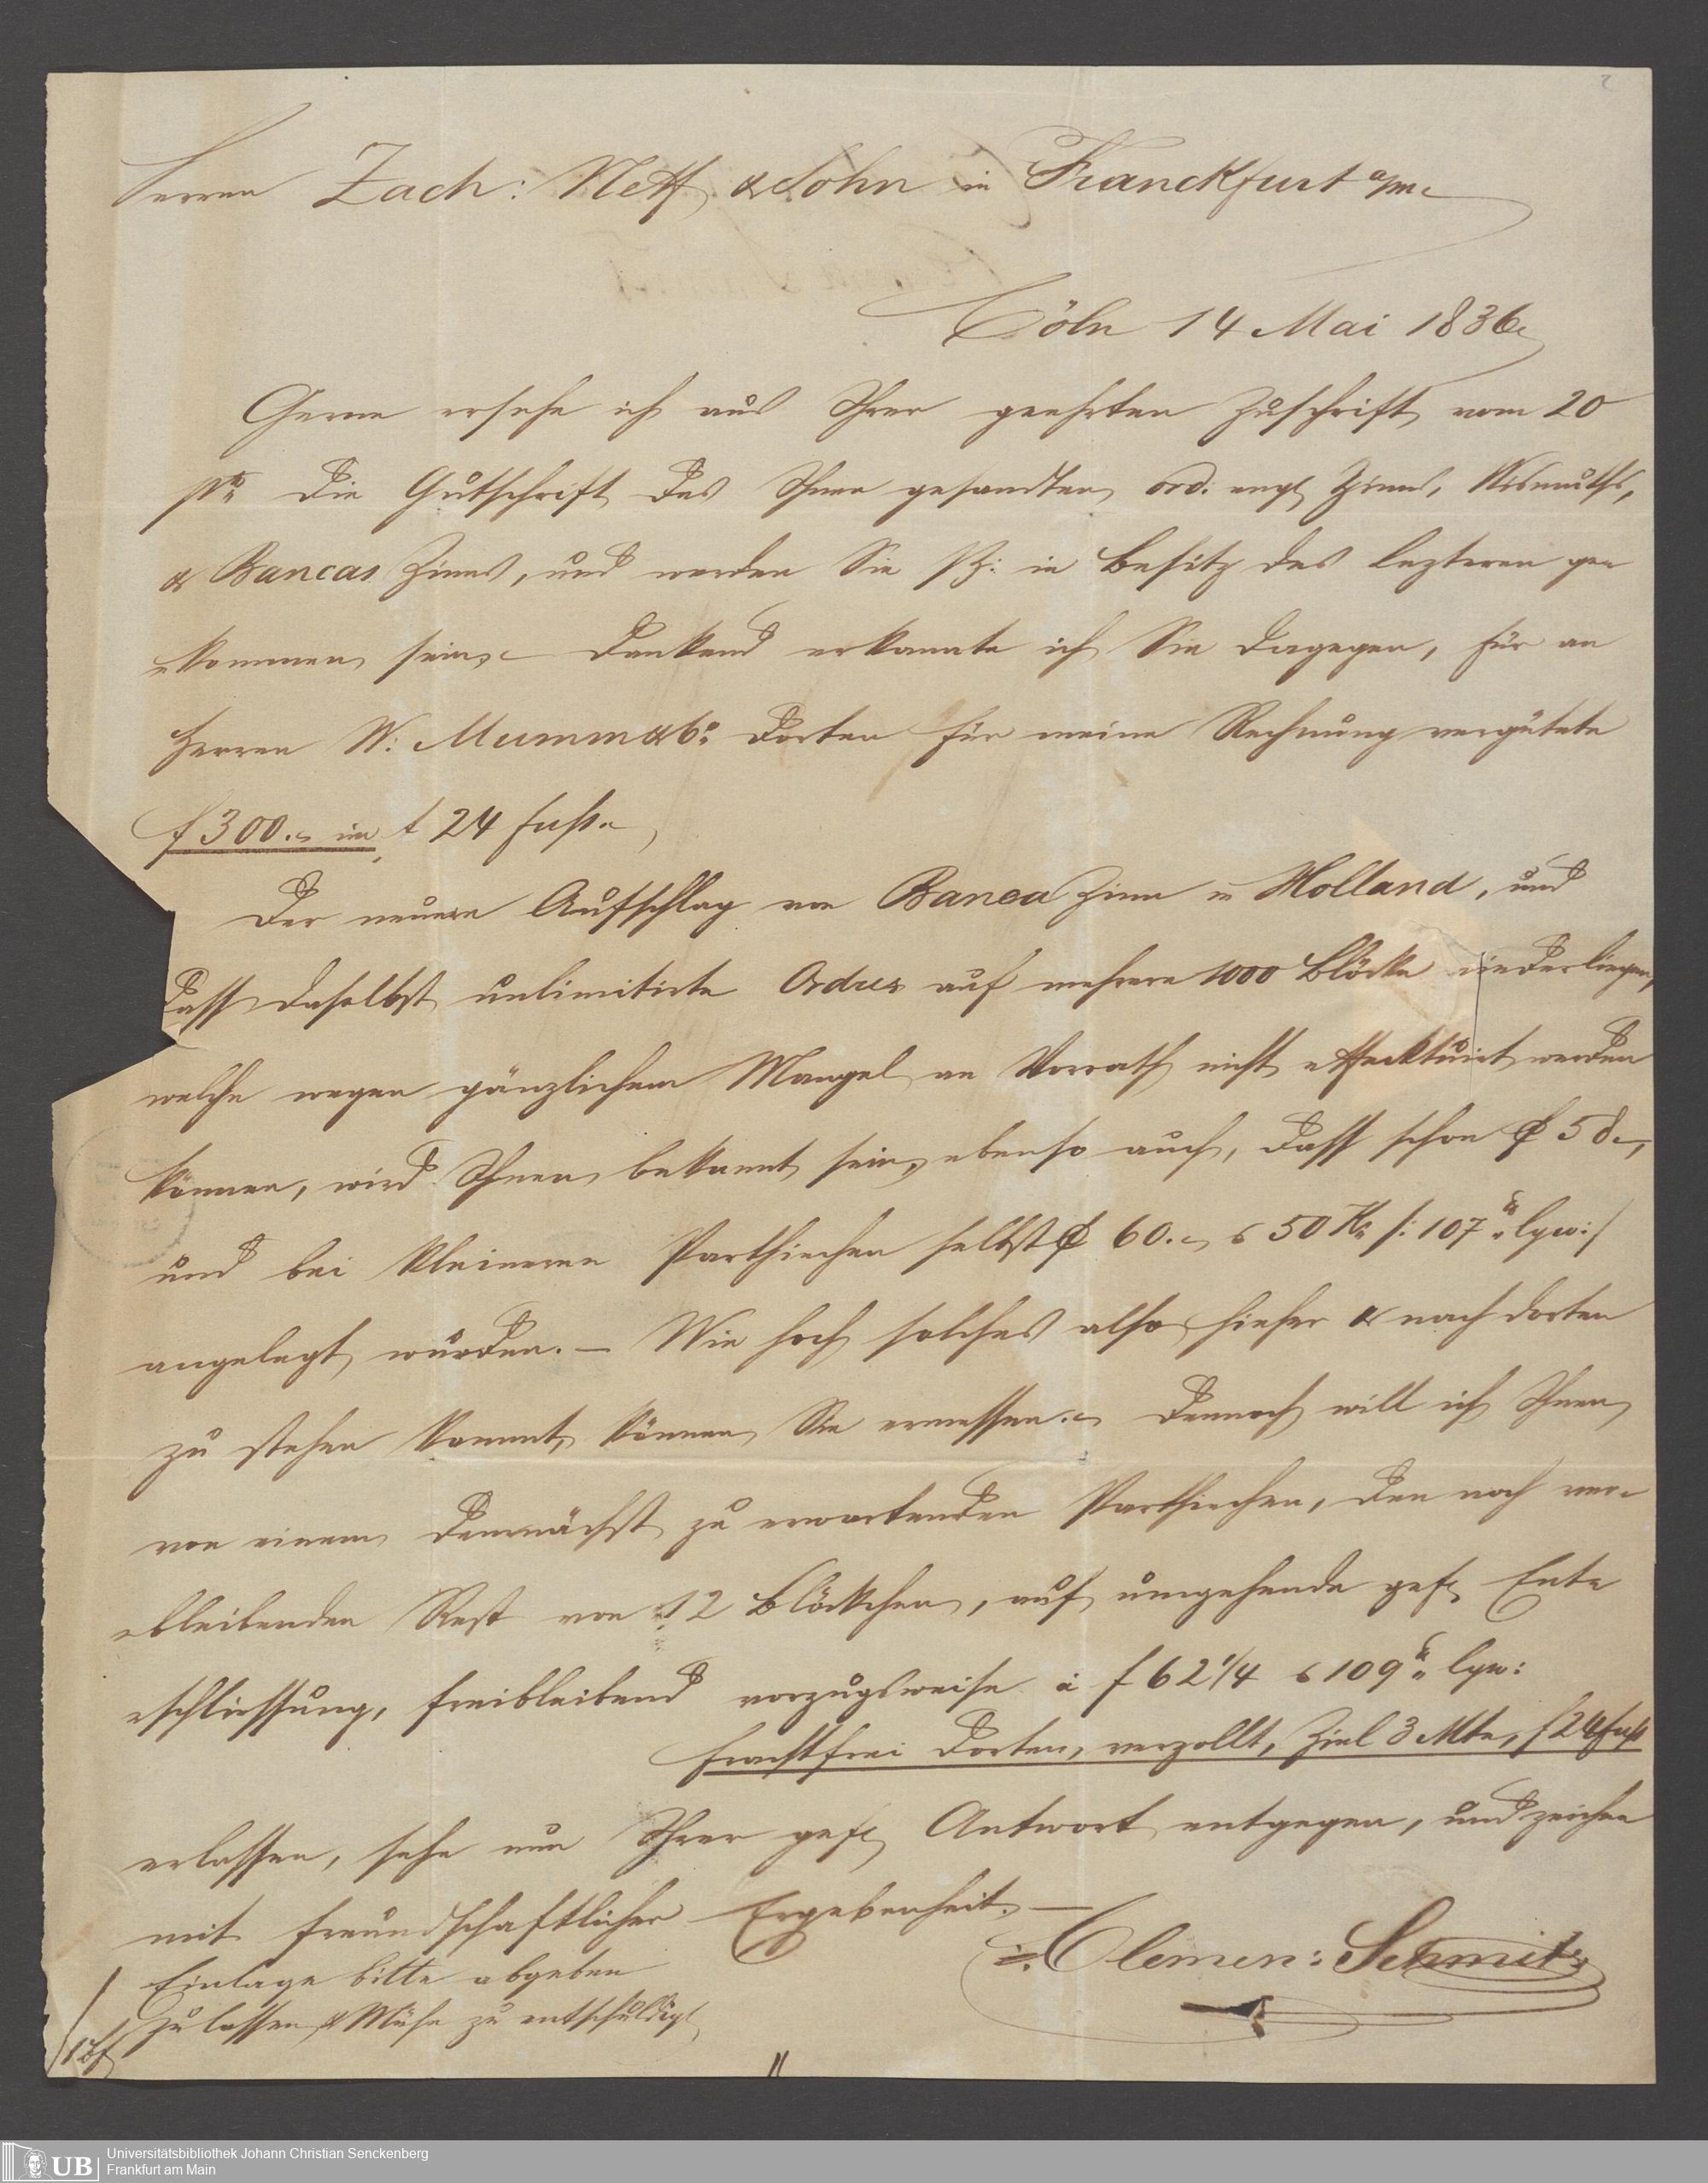 Herren Zach: Neff & Sohn in Franckfurt a/m
Cöln 14 Mai 1836
Gerne ersehe ich aus Ihrer geehrten Zuschrift vom 20
die Gutschrift des Ihnen gesandten ord. engl Zinns, Wismuths,
& Bancas Zinns, und werden Sie in Besitz des lezteren ge
kommen sein. – Dankend erkannte ich Sie dagegen, für an
Herren W: Mumm & Co dorten für meine Rechnung vergütete
f 300. im f 24 fuß.
Der neuere Aufschlag von Banca Zinn in Holland, und
dass daselbst unlimitirte Ordres auf mehrere 1000 Blöcke niederliegen,
welche wegen gänzlichem Mangel an Vorrath nicht effecktuirt werden
können, wird Ihnen bekannt sein, ebenso auch, dass schon f 58.–,
und bei kleineren Parthiechen selbst f 60. 50 K /: 107 lgw:/
angelegt wurden. – Wie hoch solches also hieher & nach dorten
zu stehen kommt, können Sie ermessen. Dennoch will ich Ihnen
von einem demnächst zu erwartenden Parthiechen, den noch ver-
bleibenden Rest von 12 Blöckchen, auf umgehende gefl Ent
schliessung, freibleibend vorzugsweise à f 62 1/4 109 lgw:
frachtfrei dorten, verzollt, Ziel 3 Mte, f 24 fuß
erlassen, sehe nun Ihrer gefl Antwort entgegen, und zeichne
mit freundschaftlicher Ergebenheit. –
Clemen: Schmitz
Einlage bitte abgeben
zu lassen, & Mühe zu entschuldigt
Universitätsbibliothek Johann Christian Senckenberg
UB Frankfurt am Main